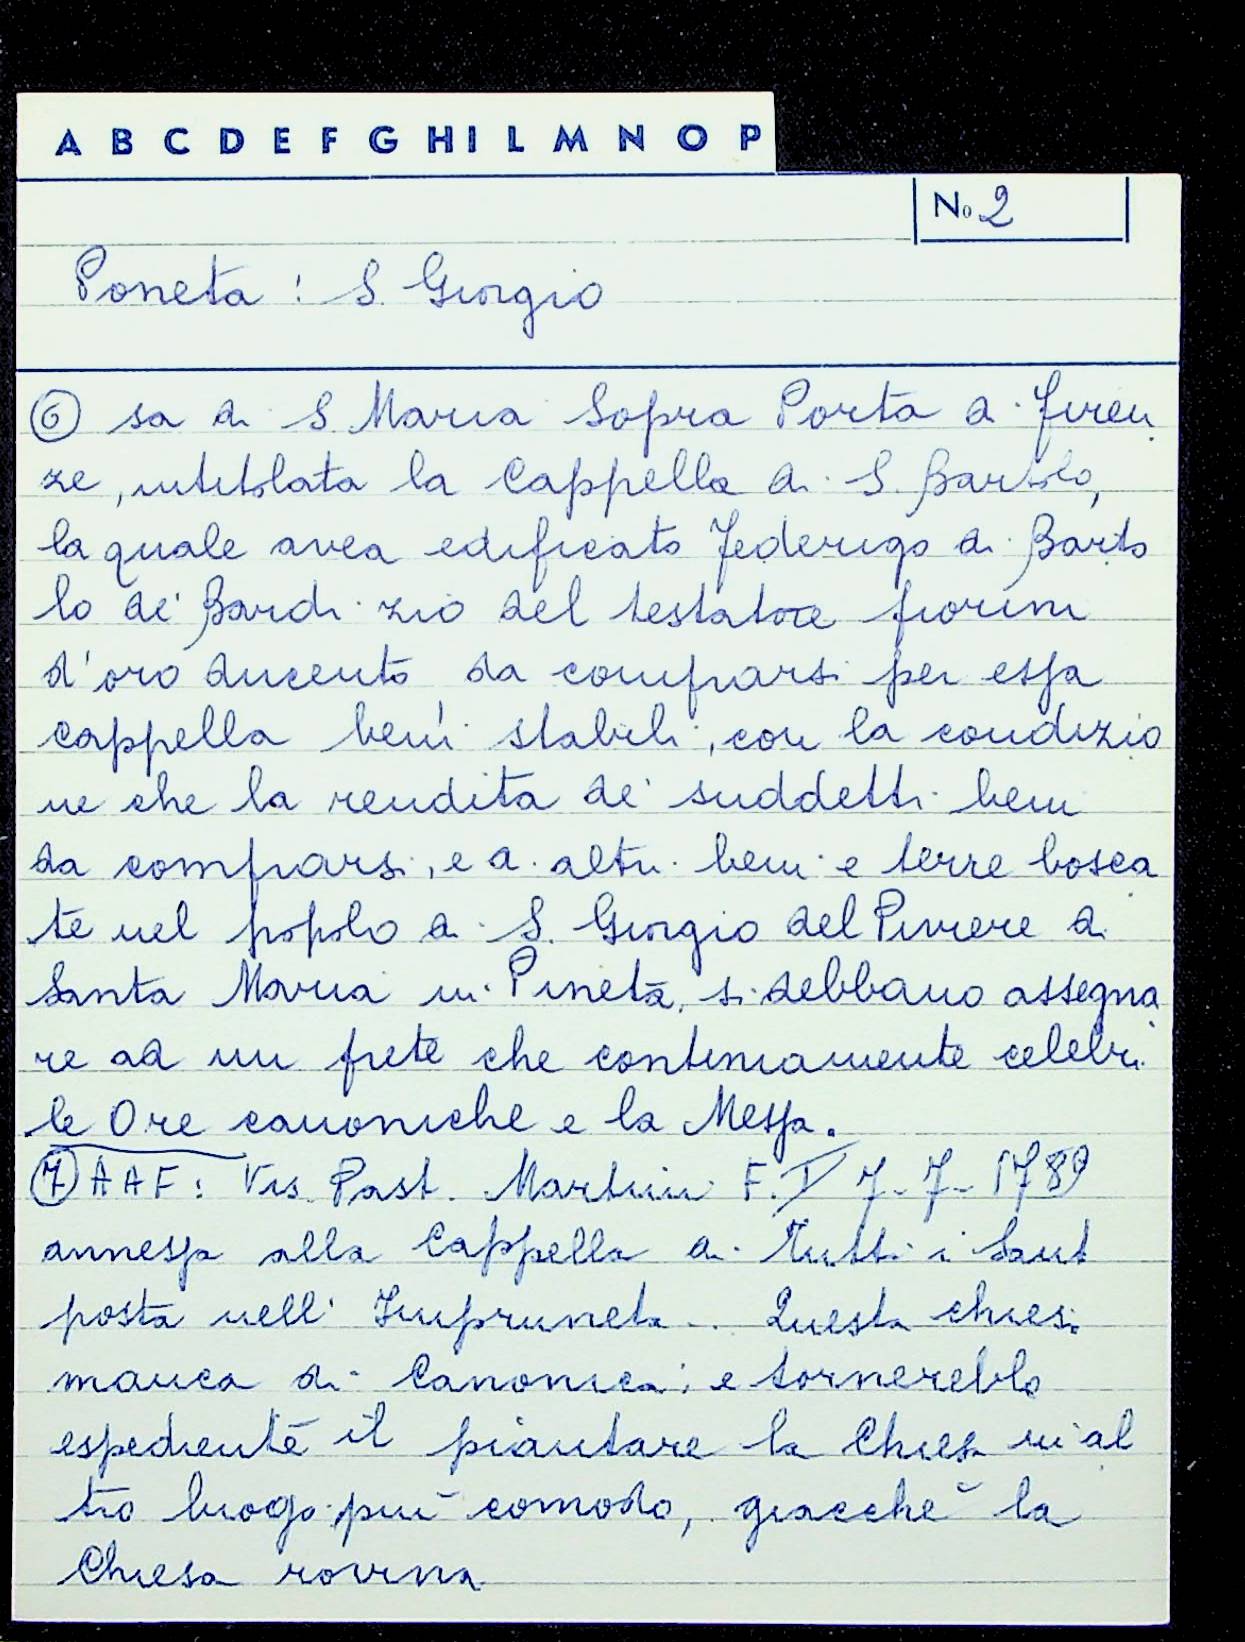 A B C D E F G H I L M N O P
No 2
Poneta : S. Giorgio
⑥ sa di S. Maria Sopra Porta di Firen
ze, intitolata la Cappella di S. Bartolo,
la quale avea edificato Federigo di Barto
lo de' Bardi zio del testatore fiorini
d'oro ducento da comprarsi per essa
cappella beni stabili, con la condizio
ne che la rendita de' suddetti beni
da comprarsi, e di altri beni e terre bosca
te nel popolo di S. Giorgio del Piviere di
Santa Maria in Pineta, si debbano assegna
re ad un prete che continuamente celebri
le Ore canoniche e la Messa.
⑦ A A F : Vis. Past. Martini F. I 7-7-1789
annessa alla Cappella di Tutti i Santi
posta nell' Impruneta.. Questa chiesa
manca di Canonica; e tornerebbe
espediente il piantare la Chiesa in al
tro luogo più comodo, giacchè la
Chiesa rovina